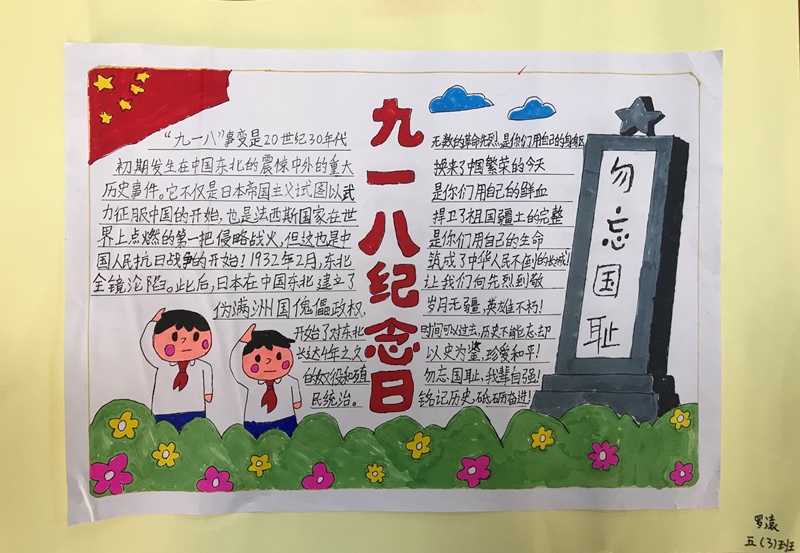 九一八纪念日
"九一八"事变是20世纪30年代
初期发生在中国东北的震惊中外的重大
历史事件。它不仅是日本帝国主义试图以武
力征服中国的开始,也是法西斯国家在世
界上点燃的第一把侵略战火,但这也是中
国人民抗日战争的开始!1932年2月,东北
全镜沦陷。此后,日本在中国东北建立了
伪满洲国傀儡政权,
开始了对东北
长达4年之久
的奴役和殖
民统治。
无数的革命先烈,是你们用自己的身躯
换来了中国繁荣的今天
是你们用自己的鲜血
捍卫了祖国疆土的完整
是你们用自己的生命
筑成了中华人民不倒的长城!
让我们向先烈到敬
岁月无疆,英雄不朽!
时间可以过去,历史不能忘却
以史为鉴,珍爱和平!
勿忘国耻,我辈自强!
铭记历史,砥砺奋进!
勿忘国耻
罗滚
五(3)班